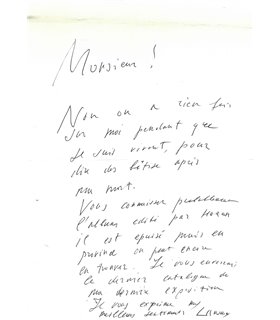 Monsieur !
Non on a rien fais
sur moi pendant que
je suis vivant, pour
dire des bêtises après
ma mort.
Vous connaissez probablement
l'album édité par
il est épuisé mais en
province on peut encore
en trouver. Je vous envoie
le dernier catalogue de
ma dernière exposition
Je vous exprime mes
meilleurs sentiments